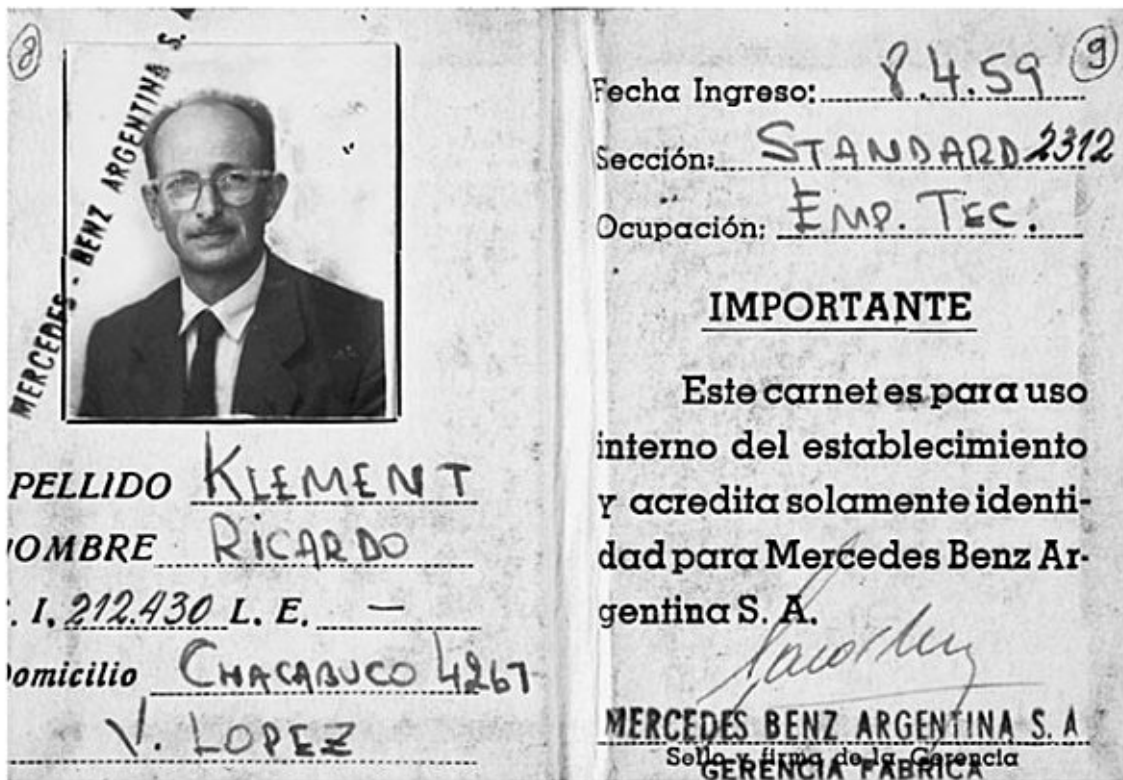 8
MERCEDES - BENZ ARGENTINA S.
PELLIDO KLEMENT
OMBRE RICARDO
. I. 212.430 L. E. —
omicilio CHACABUCO 4267
V. LOPEZ
9
Fecha Ingreso: 8.4.59
Sección: STANDARD 2312
Ocupación: EMP. TEC.
IMPORTANTE
Este carnet es para uso
interno del establecimiento
y acredita solamente identi-
dad para Mercedes Benz Ar-
gentina S. A.
MERCEDES BENZ ARGENTINA S. A
Sello y firma de la Gerencia
GERENCIA FABRICA